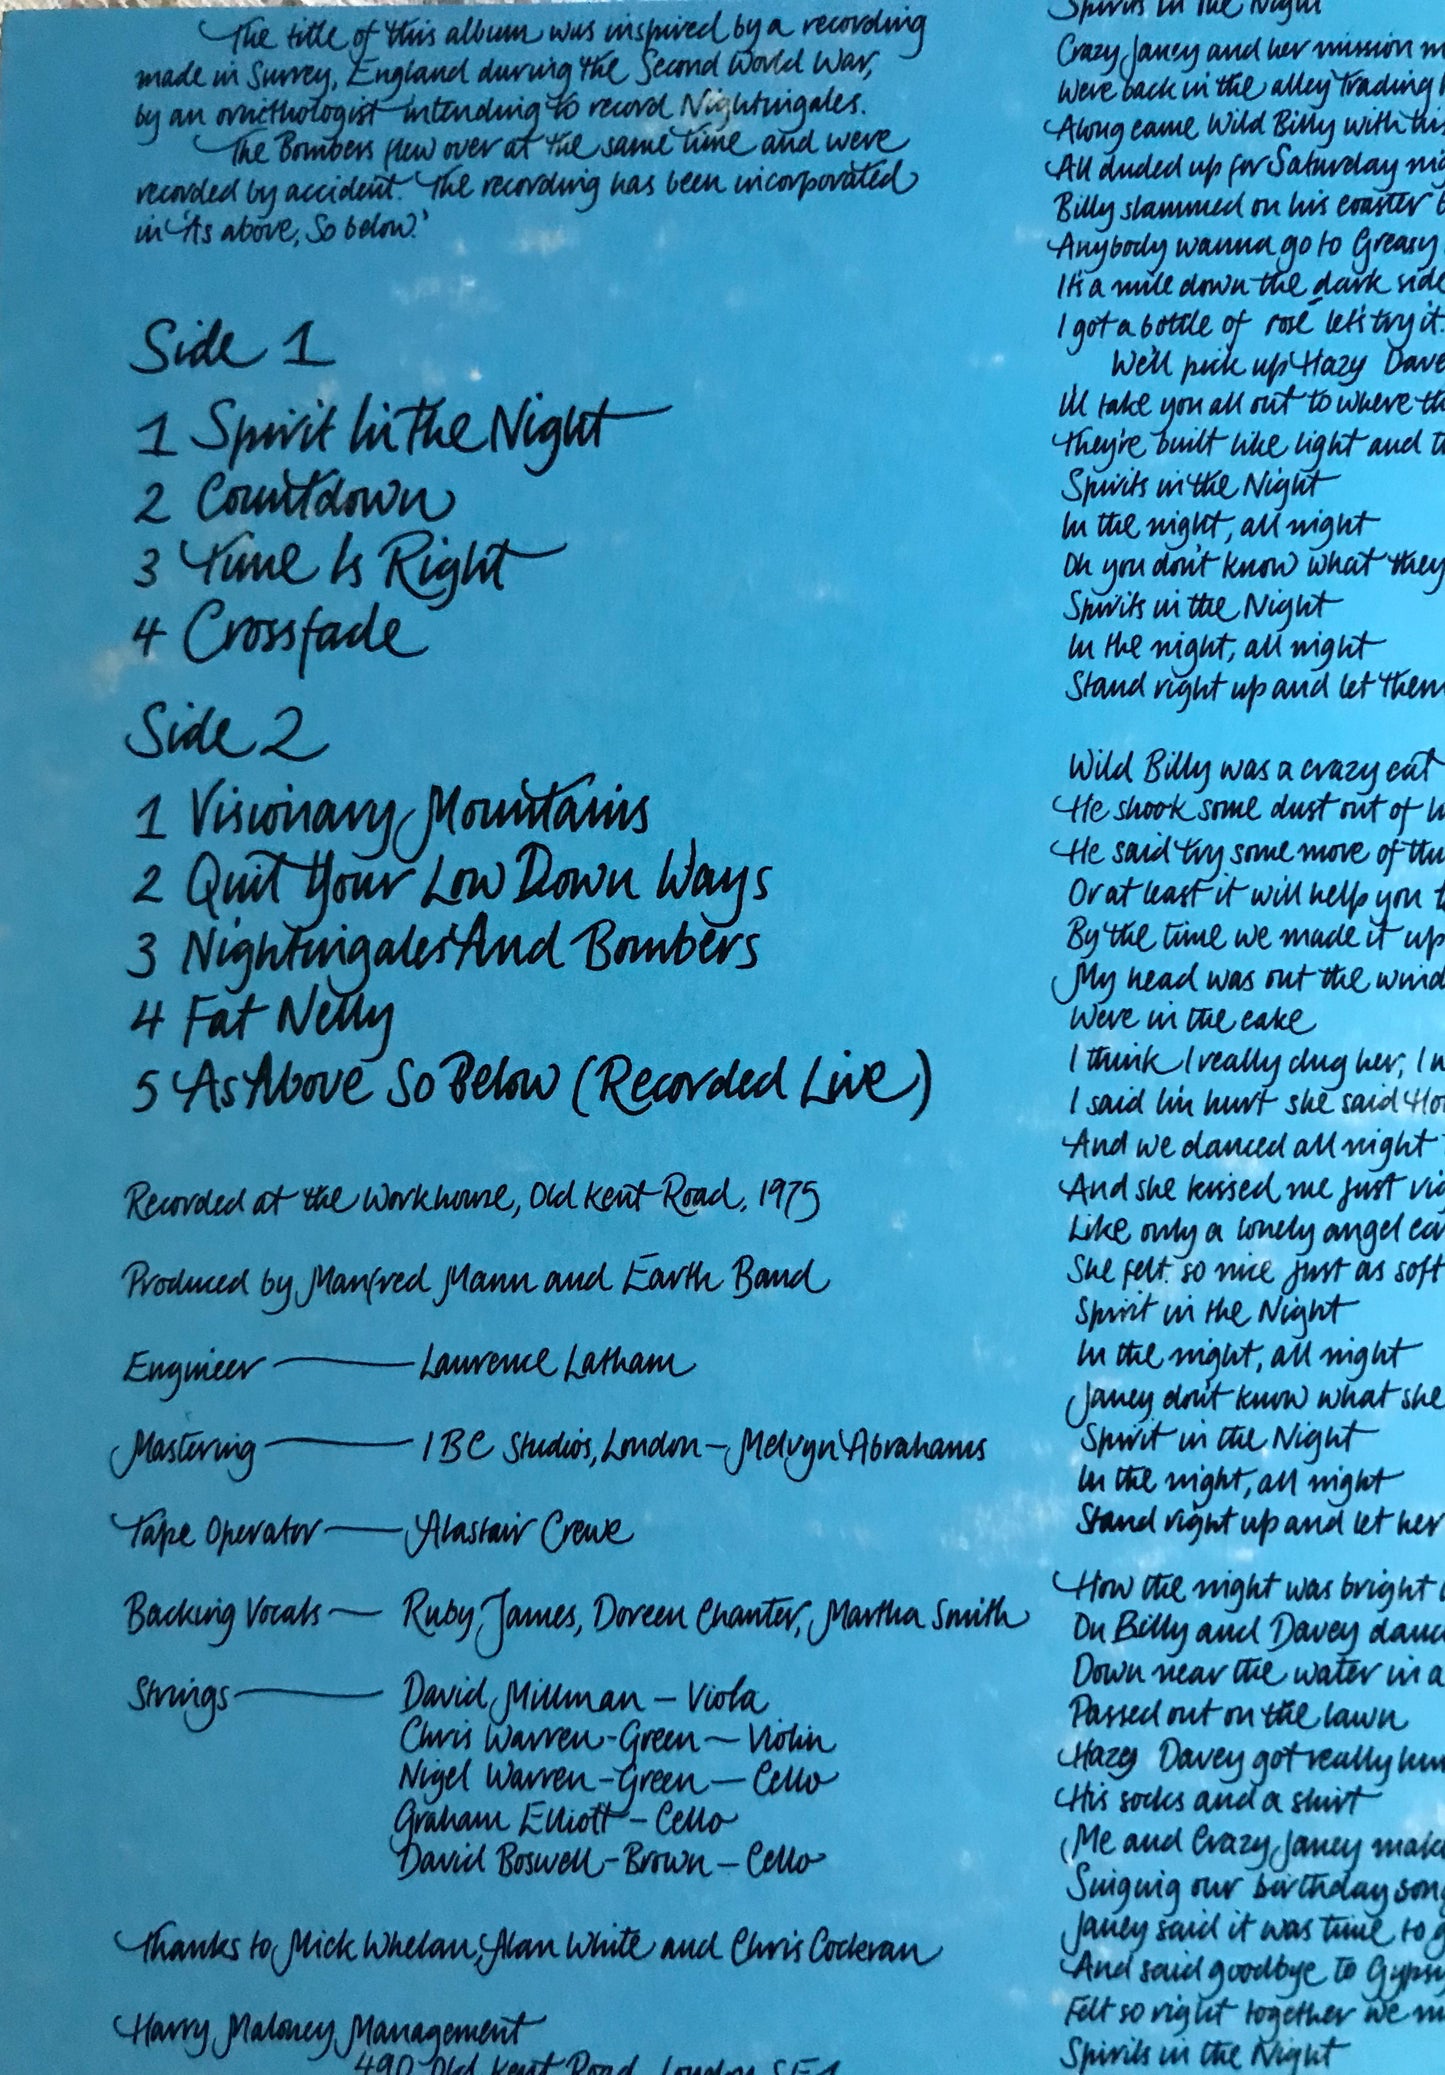 The title of this album was inspired by a recording
made in Surrey, England during the Second World War,
by an ornithologist intending to record Nightingales.
The Bombers flew over at the same time and were
recorded by accident. The recording has been incorporated
in 'As above, So below.'
Side 1
1 Spirit In The Night
2 Countdown
3 Time Is Right
4 Crossfade
Side 2
1 Visionary Mountains
2 Quit Your Low Down Ways
3 Nightingales And Bombers
4 Fat Nelly
5 As Above So Below (Recorded Live)
Recorded at the Workhouse, Old Kent Road, 1975
Produced by Manfred Mann and Earth Band
Engineer — Laurence Latham
Mastering — IBC Studios, London — Melvyn Abrahams
Tape Operator — Alastair Crewe
Backing Vocals — Ruby James, Doreen Chanter, Martha Smith
Strings — David Millman — Viola
Chris Warren-Green — Violin
Nigel Warren-Green — Cello
Graham Elliott — Cello
David Boswell-Brown — Cello
Thanks to Mick Whelan, Alan White and Chris Cockran
Harry Maloney Management
490 Old Kent Road, London SE1
Spirits in the Night
Crazy Janey and her mission
Were back in the alley trading
Along came Wild Billy with
All duded up for Saturday
Billy slammed on his coaster
Anybody wanna go to Greasy
It's a mile down the dark side
I got a bottle of rosé let's try it.
We'll pick up Hazy Dave
I'll take you all out to where
They're built like light and
Spirits in the Night
In the night, all night
Oh you don't know what they
Spirits in the Night
In the night, all night
Stand right up and let them
Wild Billy was a crazy cat
He shook some dust out of
He said try some more of
Or at least it will help you
By the time we made it up
My head was out the
Were in the cake
I think I really dug her, I
I said I'm hurt she said
And we danced all night
And she kissed me just
Like only a lonely angel
She felt so nice just as soft
Spirit in the Night
In the night, all night
Janey don't know what she
Spirit in the Night
In the night, all night
Stand right up and let her
How the night was bright
On Billy and Davey
Down near the water in a
Passed out on the lawn
Hazy Davey got really
His socks and a shirt
Me and Crazy Janey
Singing our birthday
Janey said it was time to
And said goodbye to
Felt so right together we
Spirits in the Night